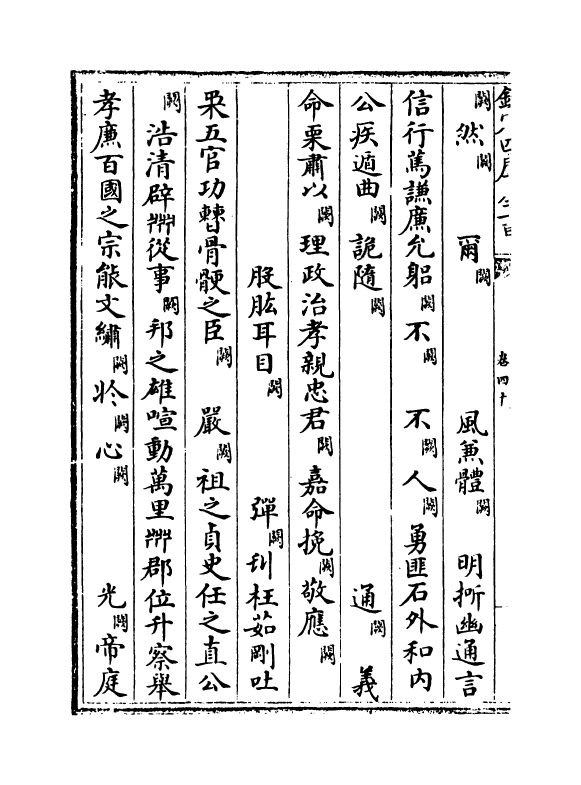 闕然闕　爾闕　風兼體闕　明㪿幽通言
信行篤謙廉允躬闕不闕　不闕人闕勇匪石外和内
公疾遁曲闕詭隨闕　通闕義
命栗肅以闕理政治孝親忠君闕嘉命挽闕敬應闕
股肱耳目闕　彈闕刋枉茹剛吐
果五官功曹骨骾之臣闕　嚴闕祖之貞史任之直公
闕浩清辟艸從事闕邦之雄喧動萬里艸郡位升察舉
孝廉百國之宗能文繡闕忴闕心闕　光闕帝庭
卷四十